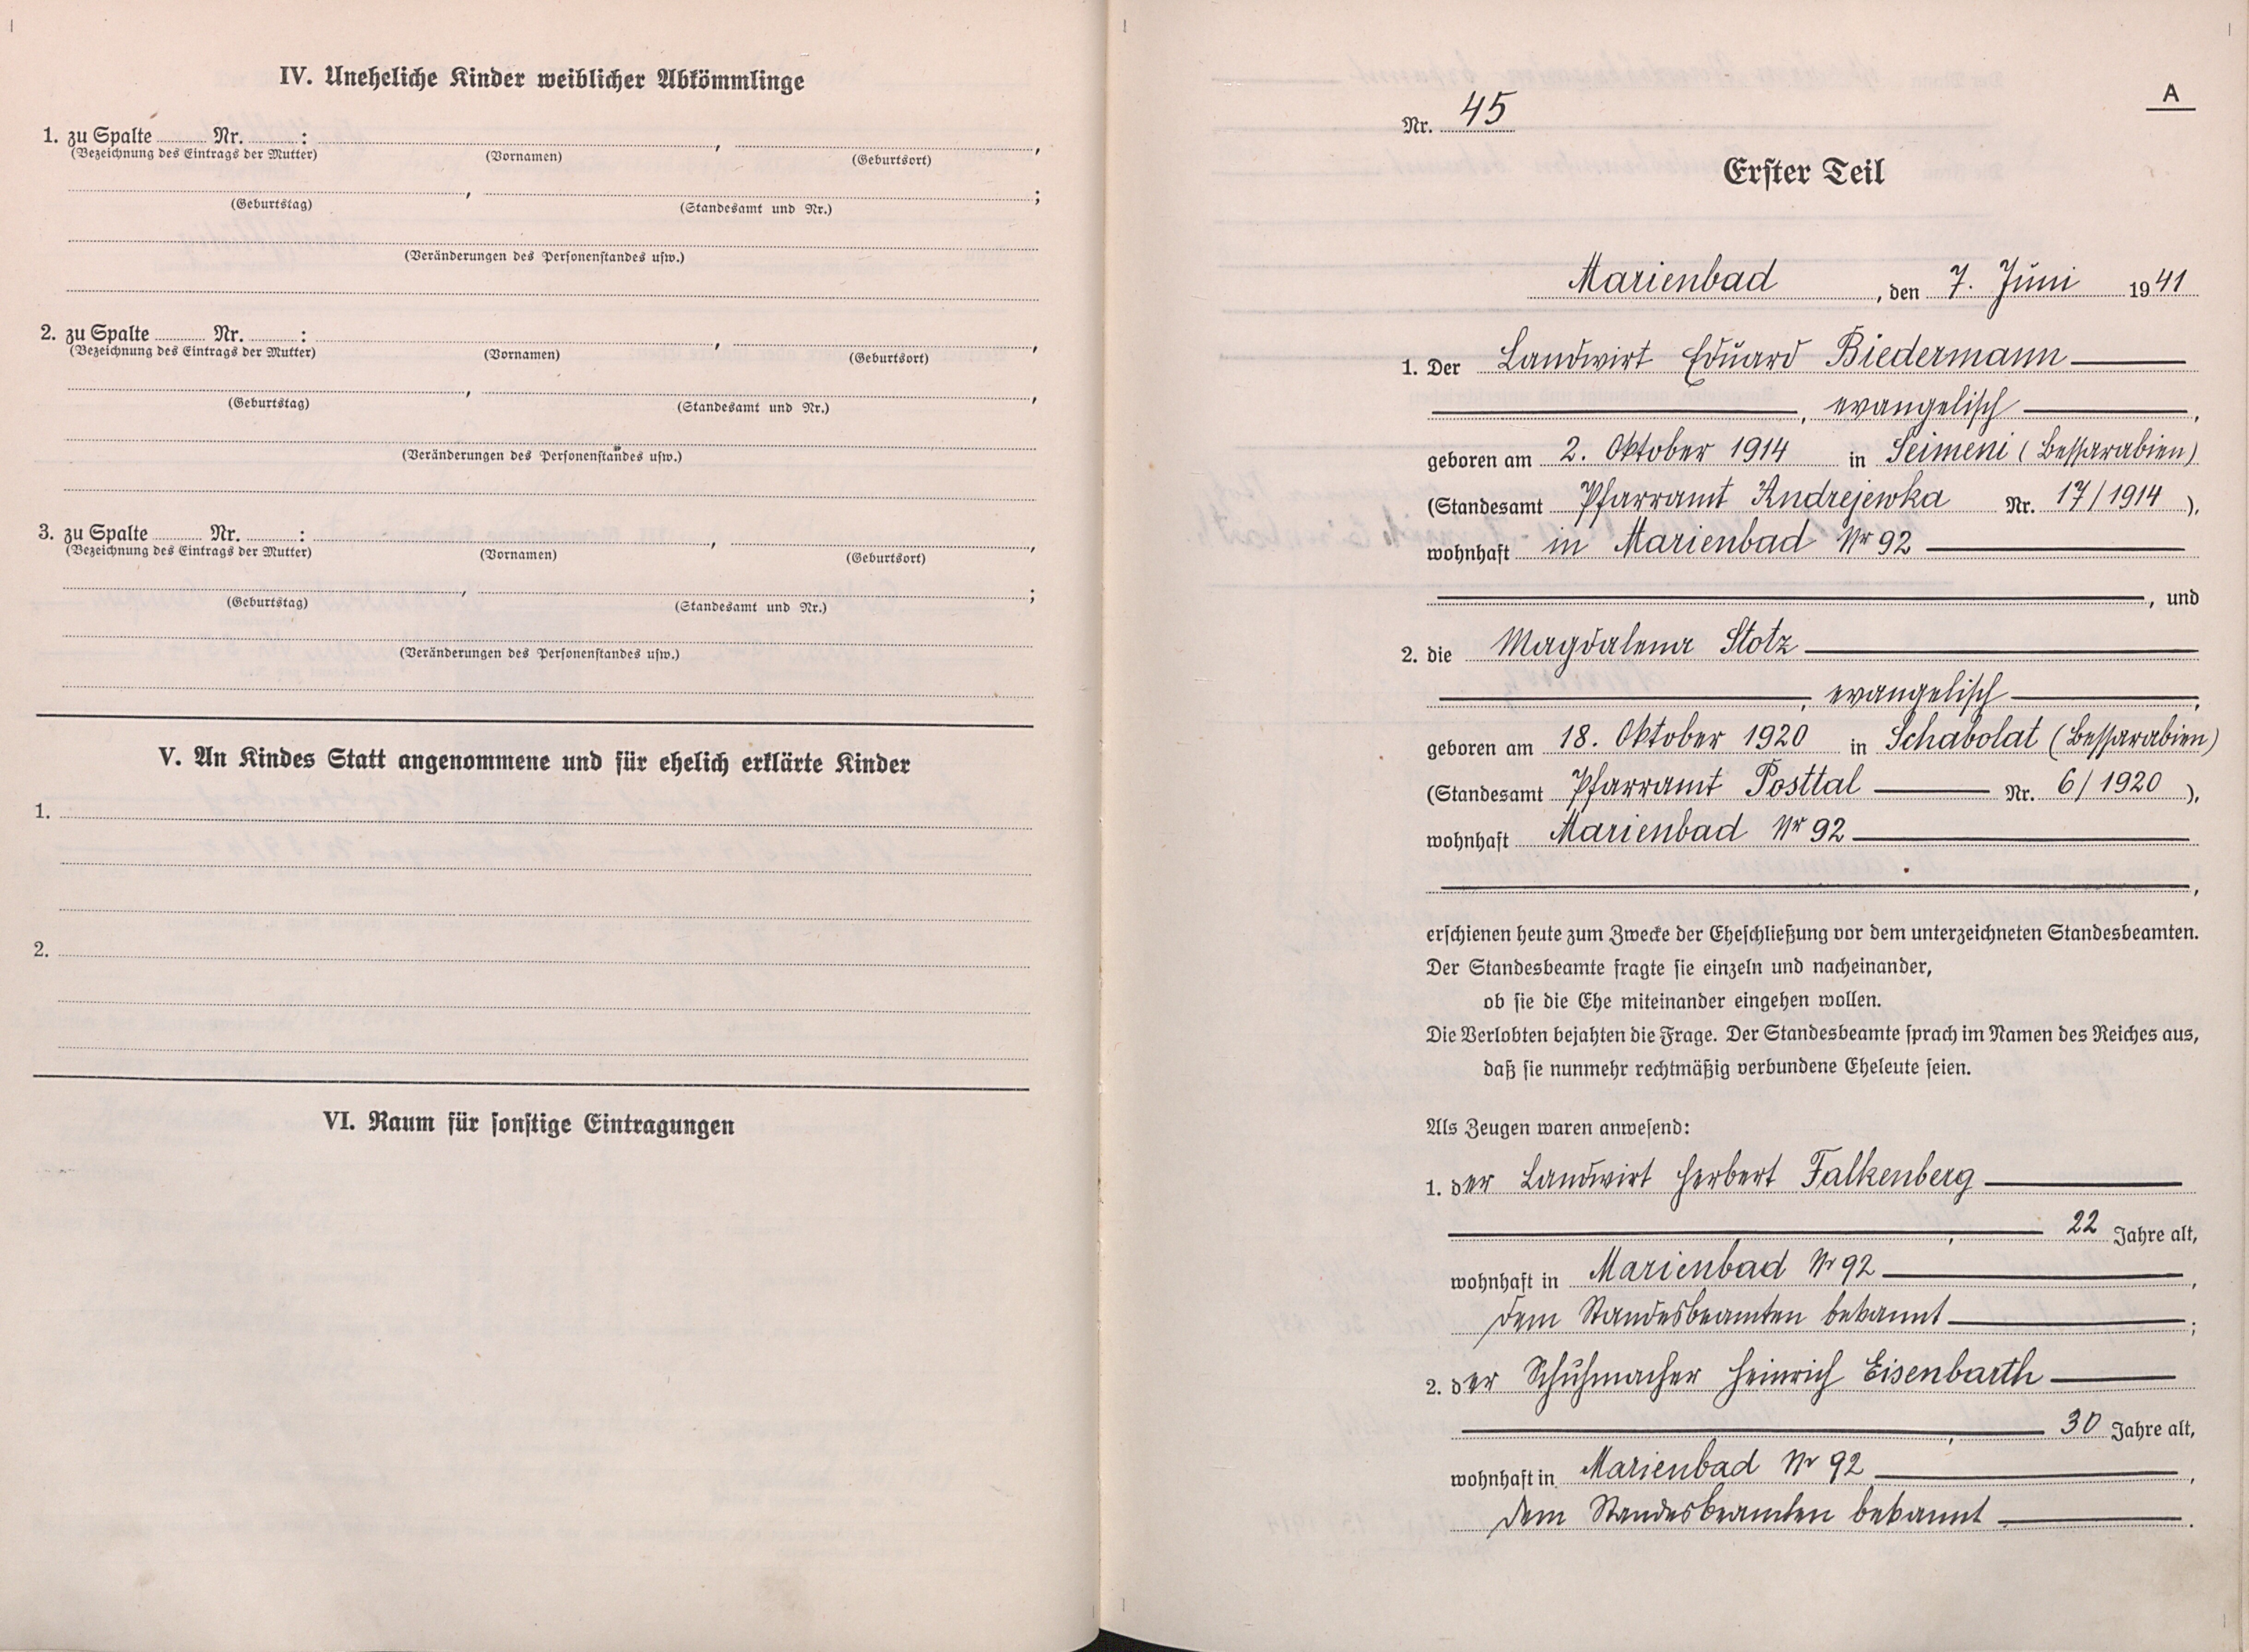 IV. Uneheliche Kinder weiblicher Abkömmlinge
1. zu Spalte ........ Nr. ........ : ........ , ........ ,
(Bezeichnung des Eintrags der Mutter) (Vornamen) (Geburtsort)
........ , ........ ;
(Geburtstag) (Standesamt und Nr.)
(Veränderungen des Personenstandes usw.)
2. zu Spalte ........ Nr. ........ : ........ , ........ ,
(Bezeichnung des Eintrags der Mutter) (Vornamen) (Geburtsort)
........ , ........ ,
(Geburtstag) (Standesamt und Nr.)
(Veränderungen des Personenständes usw.)
3. zu Spalte ........ Nr. ........ : ........ , ........ ,
(Bezeichnung des Eintrags der Mutter) (Vornamen) (Geburtsort)
........ , ........ ;
(Geburtstag) (Standesamt und Nr.)
(Veränderungen des Personenstandes usw.)
V. An Kindes Statt angenommene und für ehelich erklärte Kinder
1.
2.
VI. Raum für sonstige Eintragungen
A
Nr. 45
Erster Teil
Marienbad, den 7. Juni 1941
1. Der Landwirt Eduard Biedermann
, evangelisch ,
geboren am 2. Oktober 1914 in Seimeni (Bessarabien)
(Standesamt Pfarramt Andrejewka Nr. 17/1914 ),
wohnhaft in Marienbad Nr 92
, und
2. die Magdalena Stotz
, evangelisch ,
geboren am 18. Oktober 1920 in Schabolat (Bessarabien)
(Standesamt Pfarramt Posttal Nr. 6/1920 ),
wohnhaft Marienbad Nr 92
,
erschienen heute zum Zwecke der Eheschließung vor dem unterzeichneten Standesbeamten.
Der Standesbeamte fragte sie einzeln und nacheinander,
ob sie die Ehe miteinander eingehen wollen.
Die Verlobten bejahten die Frage. Der Standesbeamte sprach im Namen des Reiches aus,
daß sie nunmehr rechtmäßig verbundene Eheleute seien.
Als Zeugen waren anwesend:
1. der Landwirt Herbert Falkenberg
, 22 Jahre alt,
wohnhaft in Marienbad Nr 92 ,
dem Standesbeamten bekannt ;
2. der Schuhmacher Heinrich Eisenbarth
, 30 Jahre alt,
wohnhaft in Marienbad Nr 92 ,
dem Standesbeamten bekannt .